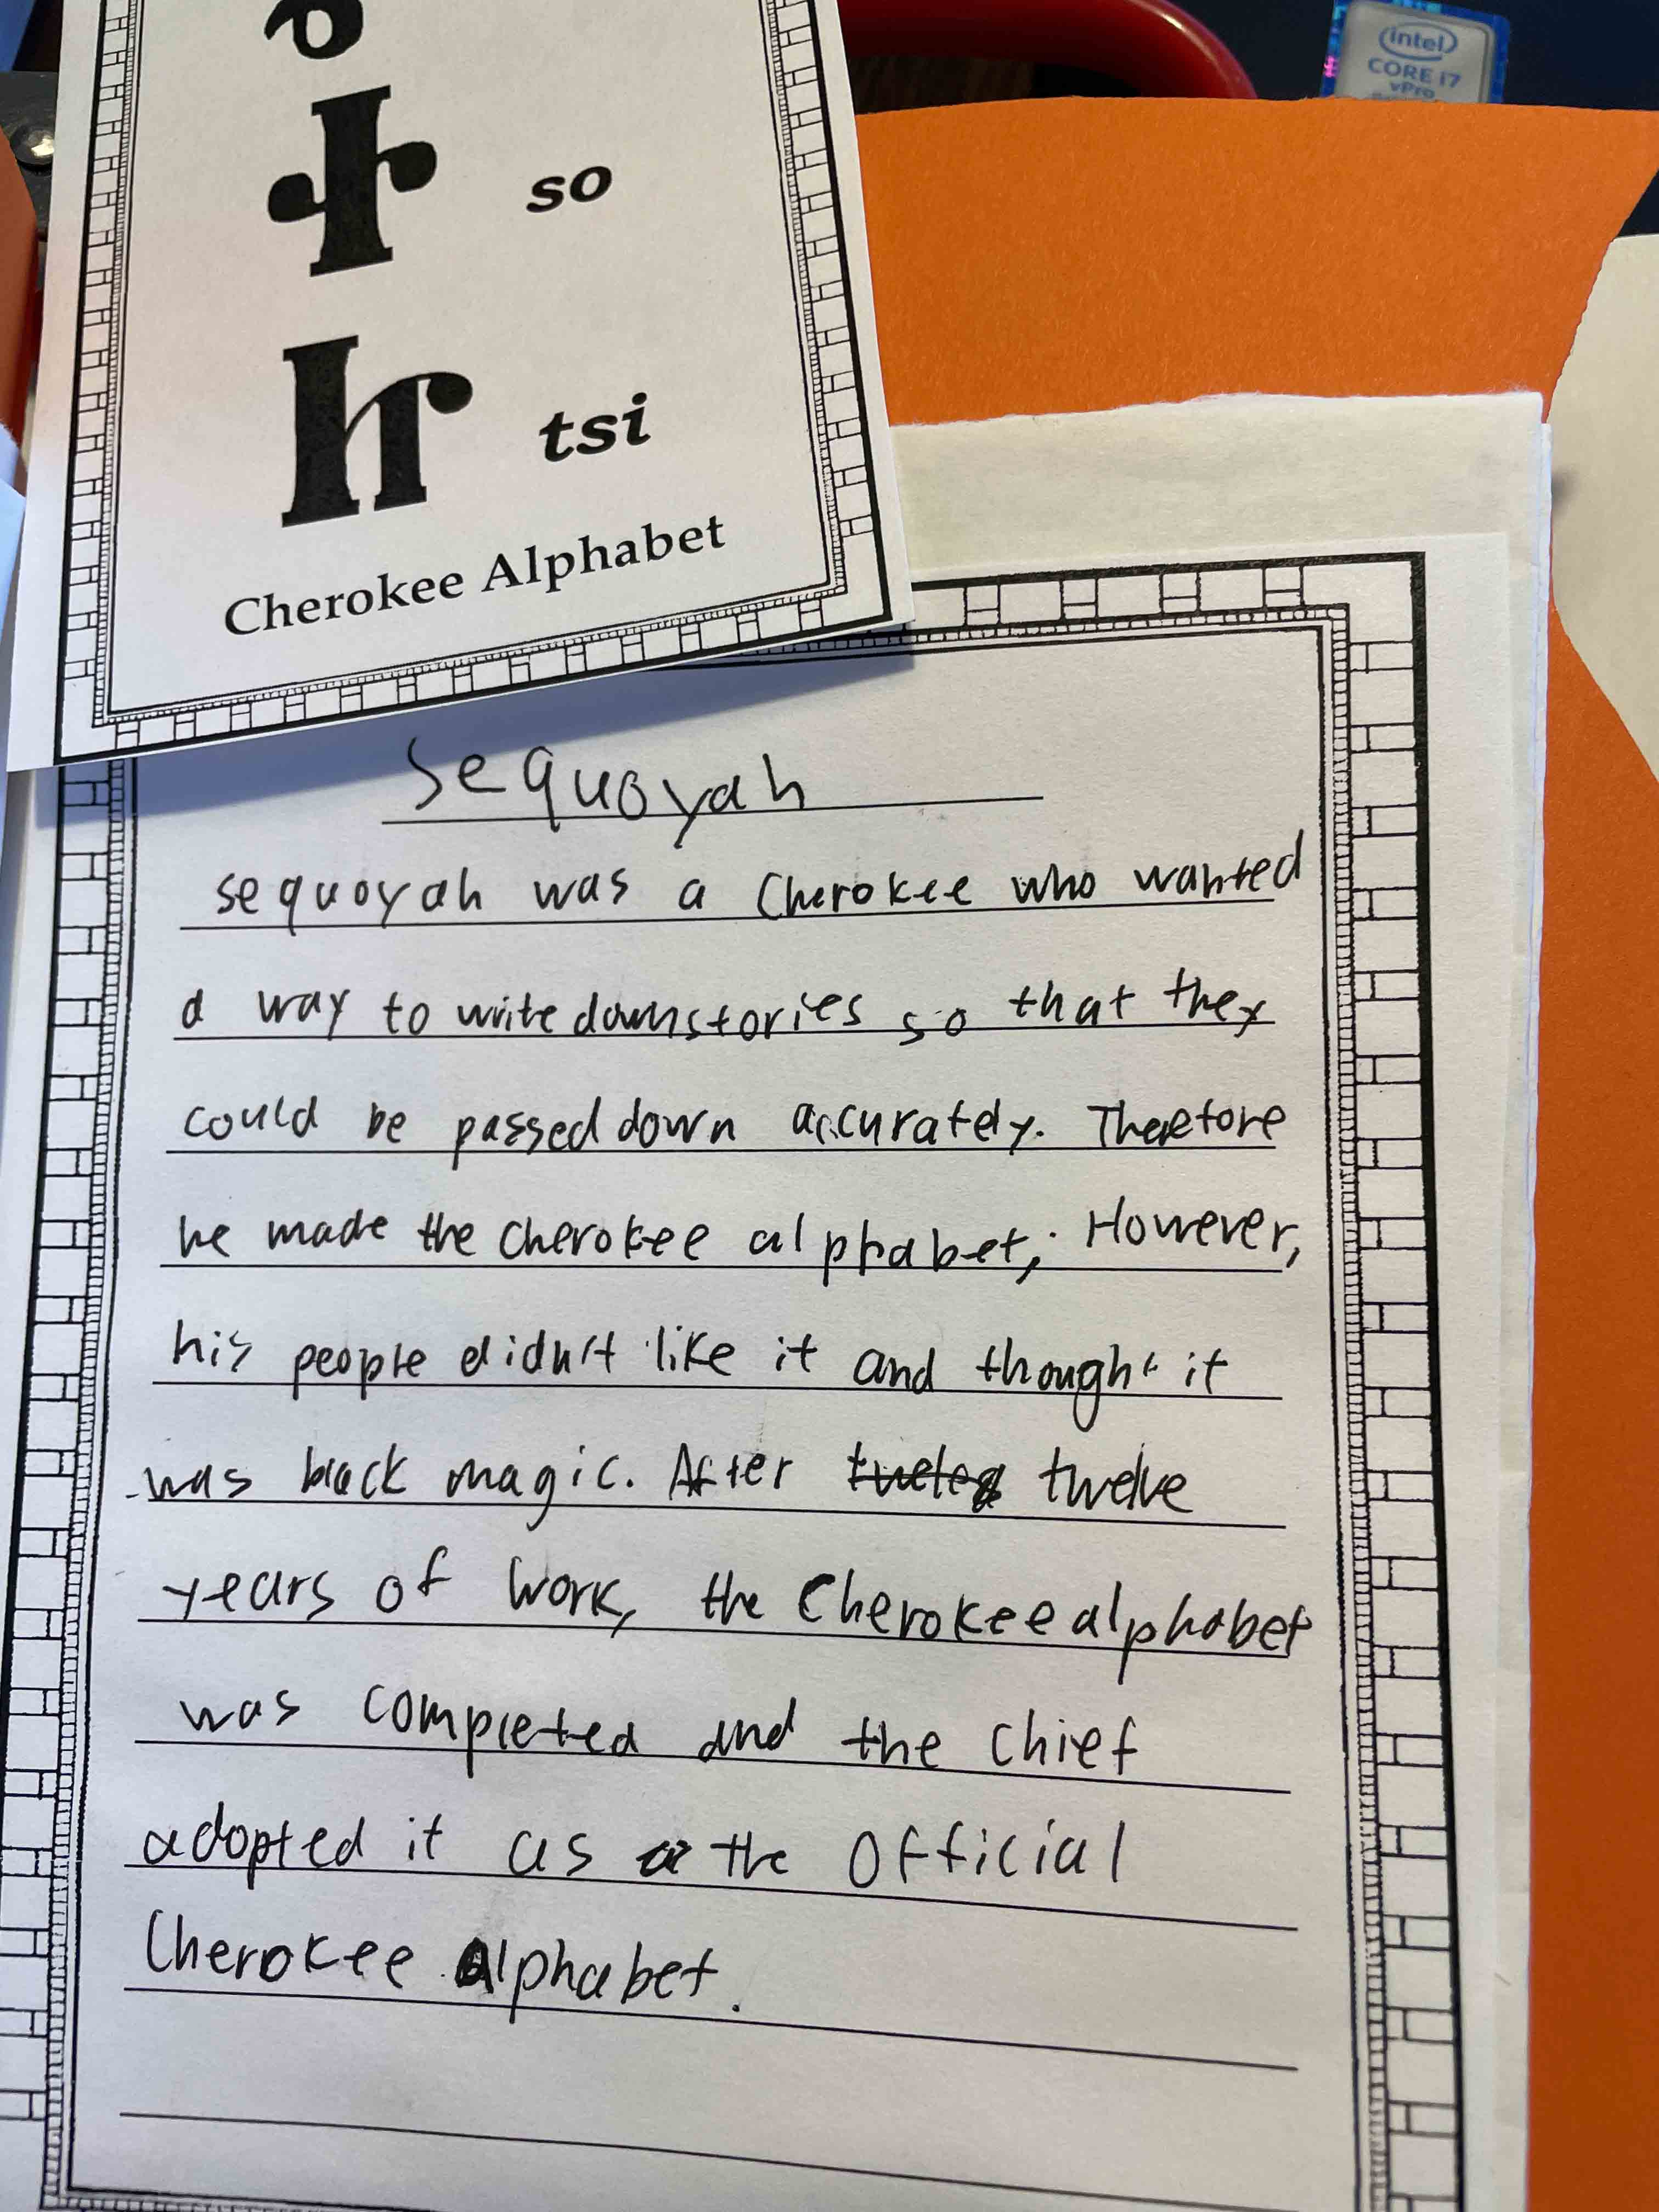 intel
CORE i7
vPro
Ꮠ so
Ꮵ tsi
Cherokee Alphabet
Sequoyah
sequoyah was a Cherokee who wanted
a way to write down stories so that they
could be passed down accurately. Therefore
he made the Cherokee alphabet; However,
his people didn't like it and thought it
was black magic. After twelve
years of work, the Cherokee alphabet
was completed and the chief
adopted it as the official
Cherokee Alphabet.